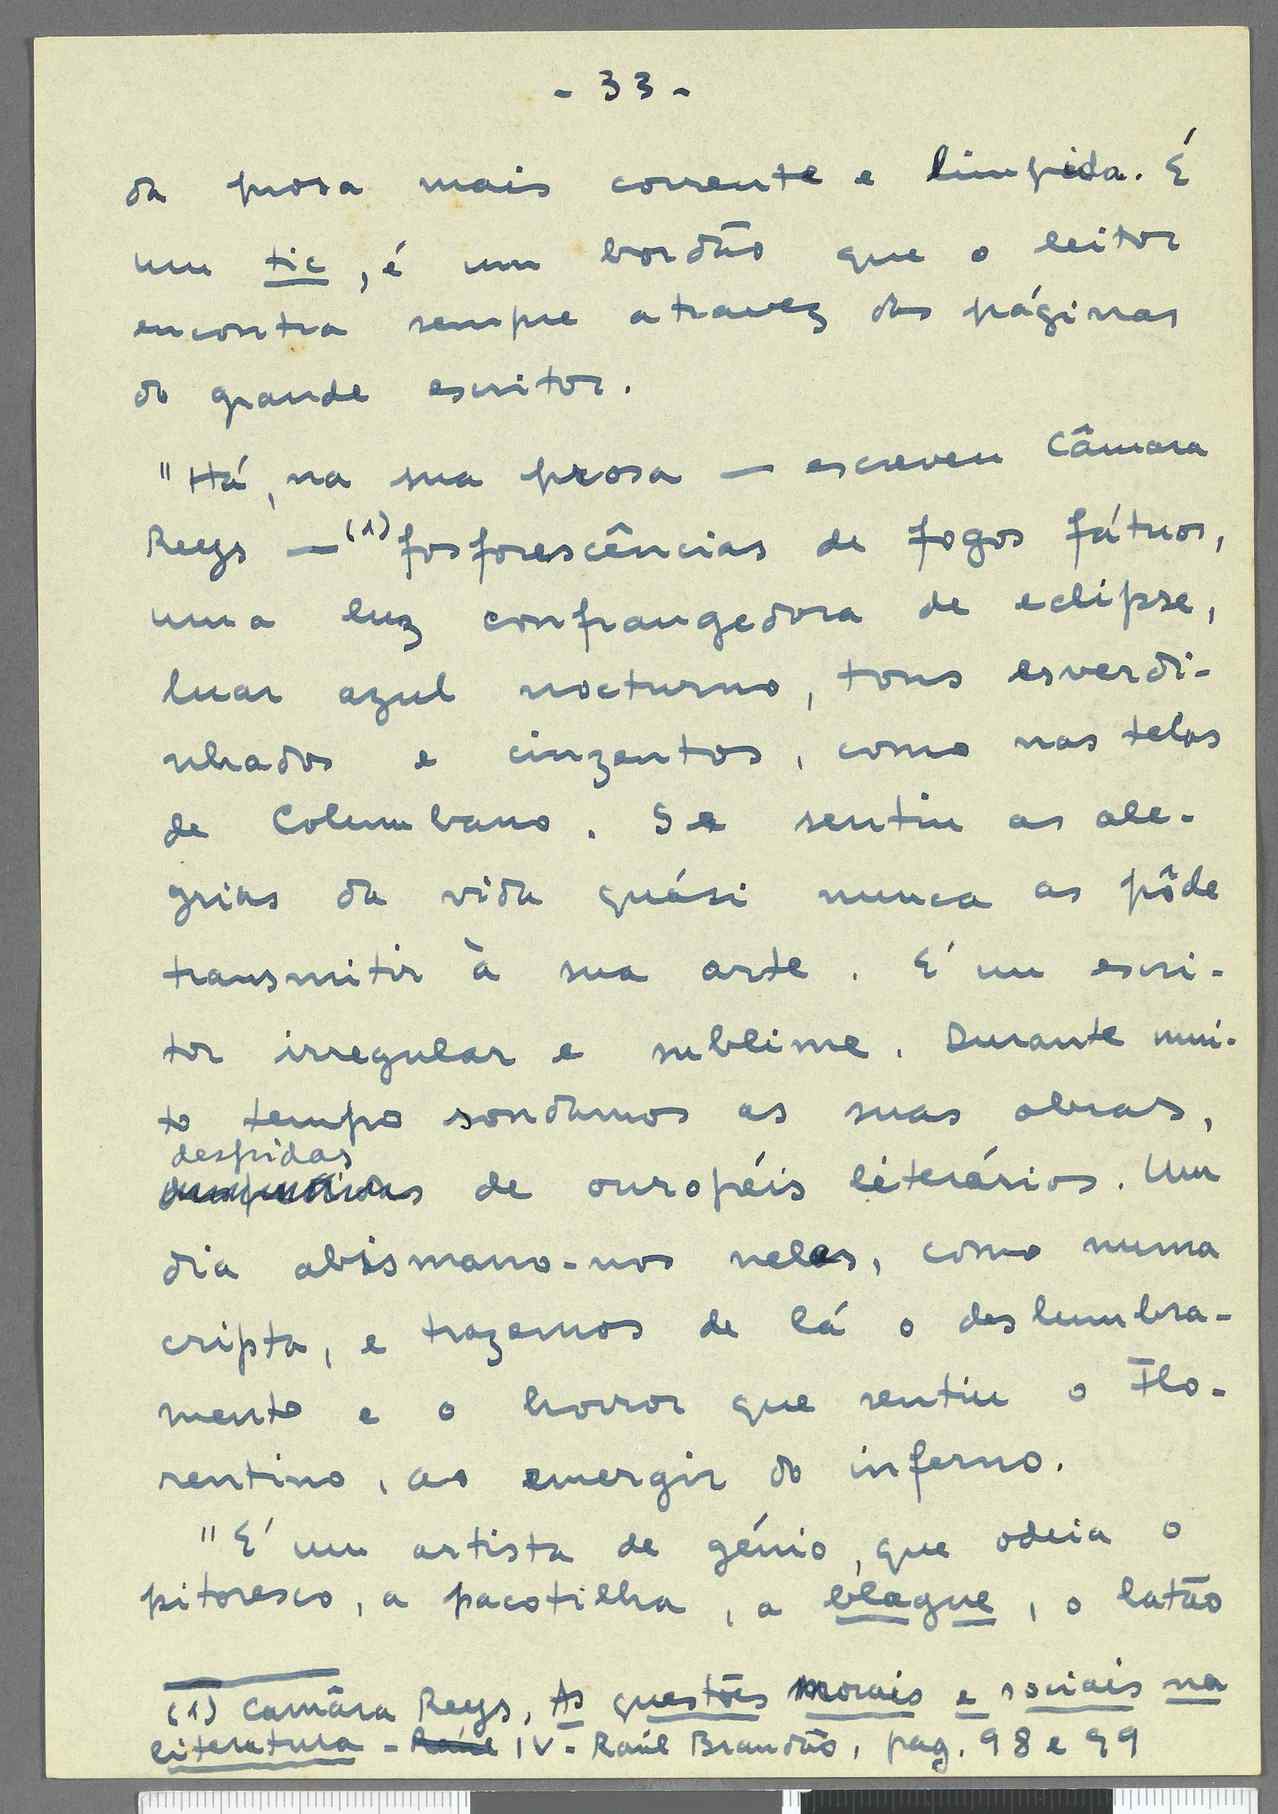 - 33 -
da prosa mais corrente e limpida. É
um tic, é um bordão que o leitor
encontra sempre atravez das páginas
do grande escritor.
"Há, na sua prosa — escreveu Câmara
Reys — (1) fosforescências de fogos fátuos,
uma luz confrangedora de eclipse,
luar azul nocturno, tons esverdi-
nhados e cinzentos, como nas telas
de Columbano. Se sentiu as ale-
grias da vida quási nunca as pôde
transmitir à sua arte. É um escri-
tor irregular e sublime. Durante mui-
to tempo sondamos as suas obras,
despidas
de ouropéis literários. Um
dia abismamo-nos nelas, como numa
cripta, e trazemos de lá o deslumbra-
mento e o horror que sentiu o Flo-
rentino, ao emergir do inferno.
"É um artista de génio, que odeia o
pitoresco, a pacotilha, a blague, o latão
(1) Camâra Reys, As questões morais e sociais na
literatura - Raúl IV - Raúl Brandão, pag. 98 e 99